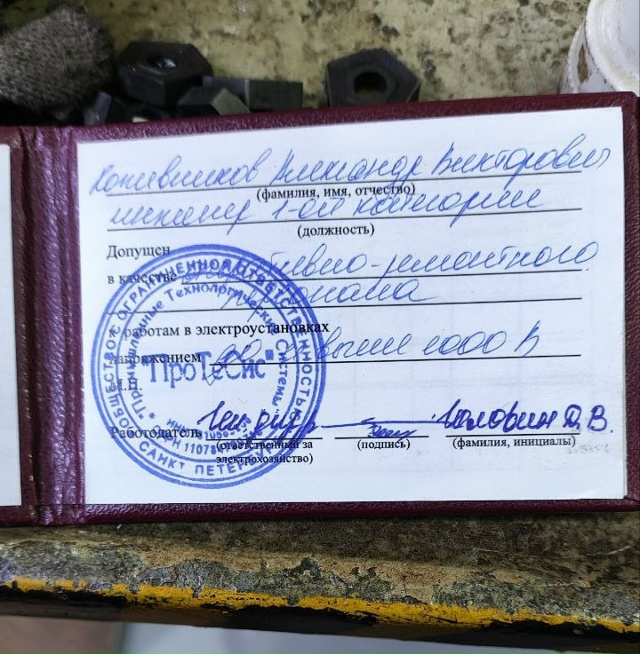 Коневщиков Александр Викторович
(фамилия, имя, отчество)
инженер 1-ой категории
(должность)
Допущен
в качестве оперативно-ремонтного
персонала
к работам в электроустановках
напряжением до и свыше 1000 В
М.П.
Работодатель Гл. Головин Д.В.
(ответственный за (подпись) (фамилия, инициалы)
электрохозяйство)
ОБЩЕСТВО С ОГРАНИЧЕННОЙ ОТВЕТСТВЕННОСТЬЮ
Промышленные Технологические Системы
"ПроТеСис"
САНКТ ПЕТЕРБУРГ